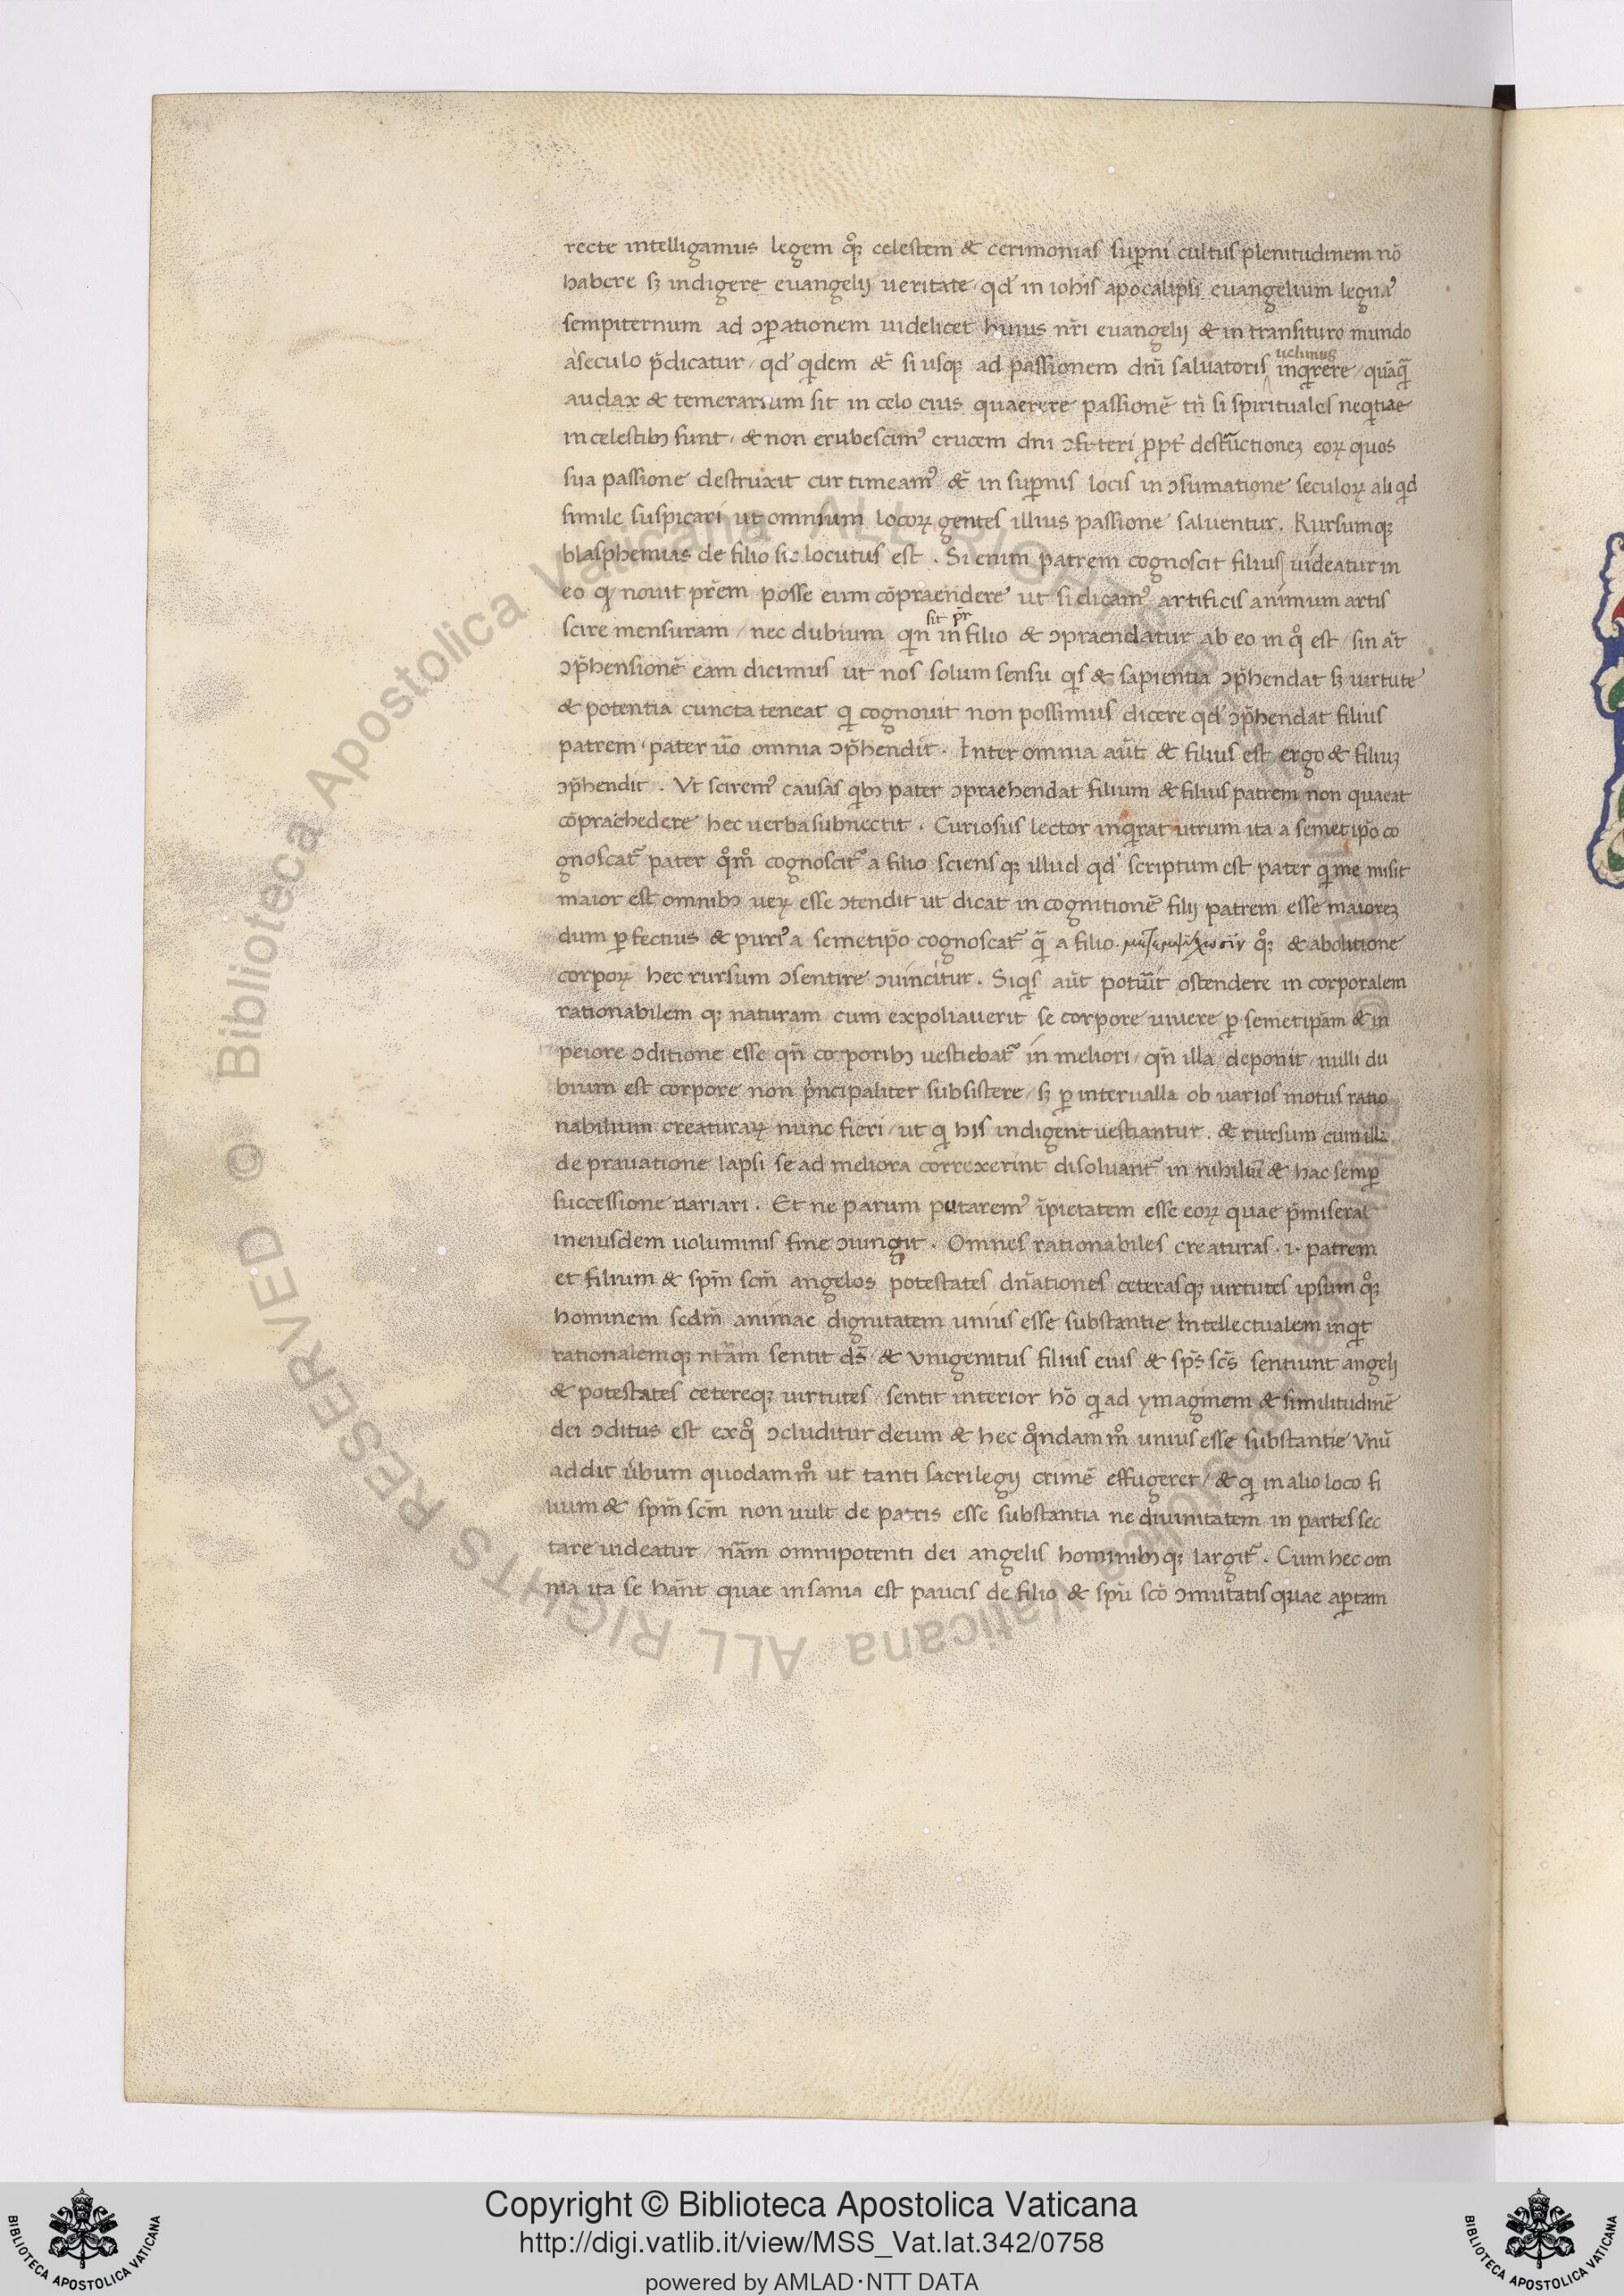 recte intelligamus legem qͦꝫ celestem & cerimonias suꝑni cultus plenitudinem nō
habere sꝫ indigere euangelij ueritate / qd' in iohis apocalipsi euangelium legimꝰ
sempiternum ad ↄꝑationem uidelicet huius nr̄i euangelij & in transituro mundo
a seculo p̄dicatur / qd' qͥdem &̄ si usqꝫ ad passionem dn̄i saluatoris uelimus inqͥrere / quāqͣ̄
audax & temerarium sit in celo eius quaerere passionē tn̄ si spirituales neqͥtiae
in celestibꝫ sunt / & non erubescimꝰ crucem dni ↄfiteri ꝓpt̄ destructionēꝫ eoꝝ quos
sua passione destruxit cur timeamꝰ &̄ in suꝑnis locis in ↄsumatione seculoꝝ aliqͥd
simile suspicari ut omnium locoꝝ gentes illius passione saluentur. Rursumqꝫ
blasphemias de filio sic locutus est . Si enim patrem cognoscit filius uideatur in
eo ꝙ nouit pr̄em posse eum cōpraendere ut si dicamꝰ artificis animum artis
scire mensuram / nec dubium qͥn sit pr̄ in filio & ↄpraendatur ab eo in qͦ est / sin at̄
ↄp̄hensionē eam dicimus ut nos solum sensu qͥs & sapientia ↄp̄hendat sꝫ uirtute
& potentia cuncta teneat qͥ cognouit non possimus dicere qd' ↄp̄hendat filius
patrem / pater u̅o omnia ↄp̄hendit . Inter omnia aūt & filius est ergo & filiuꝫ
ↄp̄hendit . Vt sciremꝰ causas qͥbꝫ pater ↄpraehendat filium & filius patrem non quaeat
cōpraehedere hec uerba subnectit . Curiosus lector inqͥrat utrum ita a semetip̄o co
gnoscat᷑ pater qͦmͦ cognoscit᷑ a filio sciens qꝫ illud qd' scriptum est pater qͥ me misit
maior est omnibꝫ ueꝝ esse ↄtendit ut dicat in cognitionē filij patrem esse maioreꝫ
dum ꝑfectius & puriꝰ a semetip̄o cognoscat᷑ qͣ̄ a filio. qͦꝫ & abolitione
corpoꝝ hec rursum ↄsentire ↄuincitur . Siqͥs aūt potu̅it ostendere in corporalem
rationabilem qꝫ naturam cum expoliauerit se corpore uiuere ꝑ semetip̄am & in
peiore ↄditione esse qn̄ corporibꝫ uestiebat᷑ in meliori / qn̄ illa deponit / nulli du
bium est corpore non pͥncipaliter subsistere / sꝫ ꝑ interualla ob uarios motus ratio
nabilium creaturaꝝ nunc fieri / ut qͥ his indigent uestiantur . & rursum cum illa
de prauatione lapsi se ad meliora correxerint disoluant᷑ in nihilū & hac semꝑ
successione uariari . Et ne parum putaremꝰ īpietatem esse eoꝝ quae p̄miserat
in eiusdem uoluminis fine ↄiungit . Omnes rationabiles creaturas .i. patrem
et filium & spm̄ scm̄ angelos potestates dn̄ationes ceterasqꝫ uirtutes ipsum qͦꝫ
hominem scdm̄ animae dignitatem unius esse substantie Intellectualem inqͥt
rationalemqꝫ nt̄am sentit ds̄ / & Vnigenitus filius eius & sps̄ scs̄ sentiunt angelj
& potestates cetereqꝫ uirtutes / sentit interior hō qͥ ad ymaginem & similitudinē
dei ↄditus est ex qͦ ↄcluditur deum & hec qͦndam mͦ unius esse substantie Vnū
addit u̅bum quodam mͦ ut tanti sacrilegij crimē effugeret / & qͥ in alio loco fi
lium & spm̄ scm̄ non uult de patris esse substantia ne diuinitatem in partes sec
tare uideatur / nām omnipotenti dei angelis hominibꝫ qꝫ largit᷑ . Cum hec om
nia ita se hān̄t quae insania est paucis de filio & spū scō ↄmutatis quae aꝑtam
Copyright © Biblioteca Apostolica Vaticana
http://digi.vatlib.it/view/MSS_Vat.lat.342/0758
powered by AMLAD·NTT DATA
BIBLIOTECA APOSTOLICA VATICANA
BIBLIOTECA APOSTOLICA VATICANA
Biblioteca Apostolica Vaticana ALL RIGHTS RESERVED ©